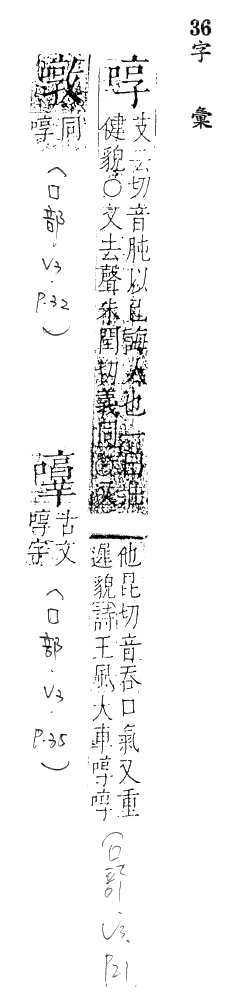 36 字 彙
啍
支云切音肫以口誨人也一曰
健貌○文去聲朱閏切義同 又
他昆切音吞口氣又重
遲貌詩王風大車啍啍
(口部 V3. P21)
同
啍
(口部·V3·P.32)
古文
啍字
(口部·V3·P.35)